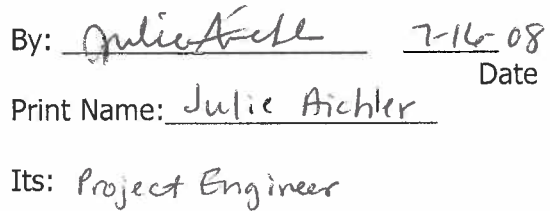 By: Julie Aichler 7-16-08
Date
Print Name: Julie Aichler
Its: Project Engineer